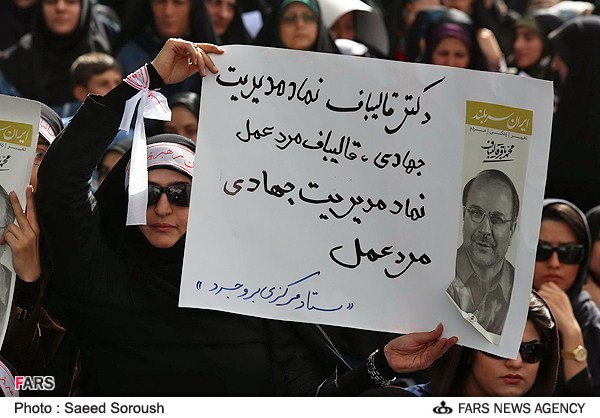 دکتر قالیباف نماد مدیریت
جهادی، قالیباف مرد عمل
نماد مدیریت جهادی
مرد عمل
«ستاد مرکزی بروجرد»
ایران سربلند
محمدباقر قالیباف
FARS
Photo : Saeed Soroush
FARS NEWS AGENCY